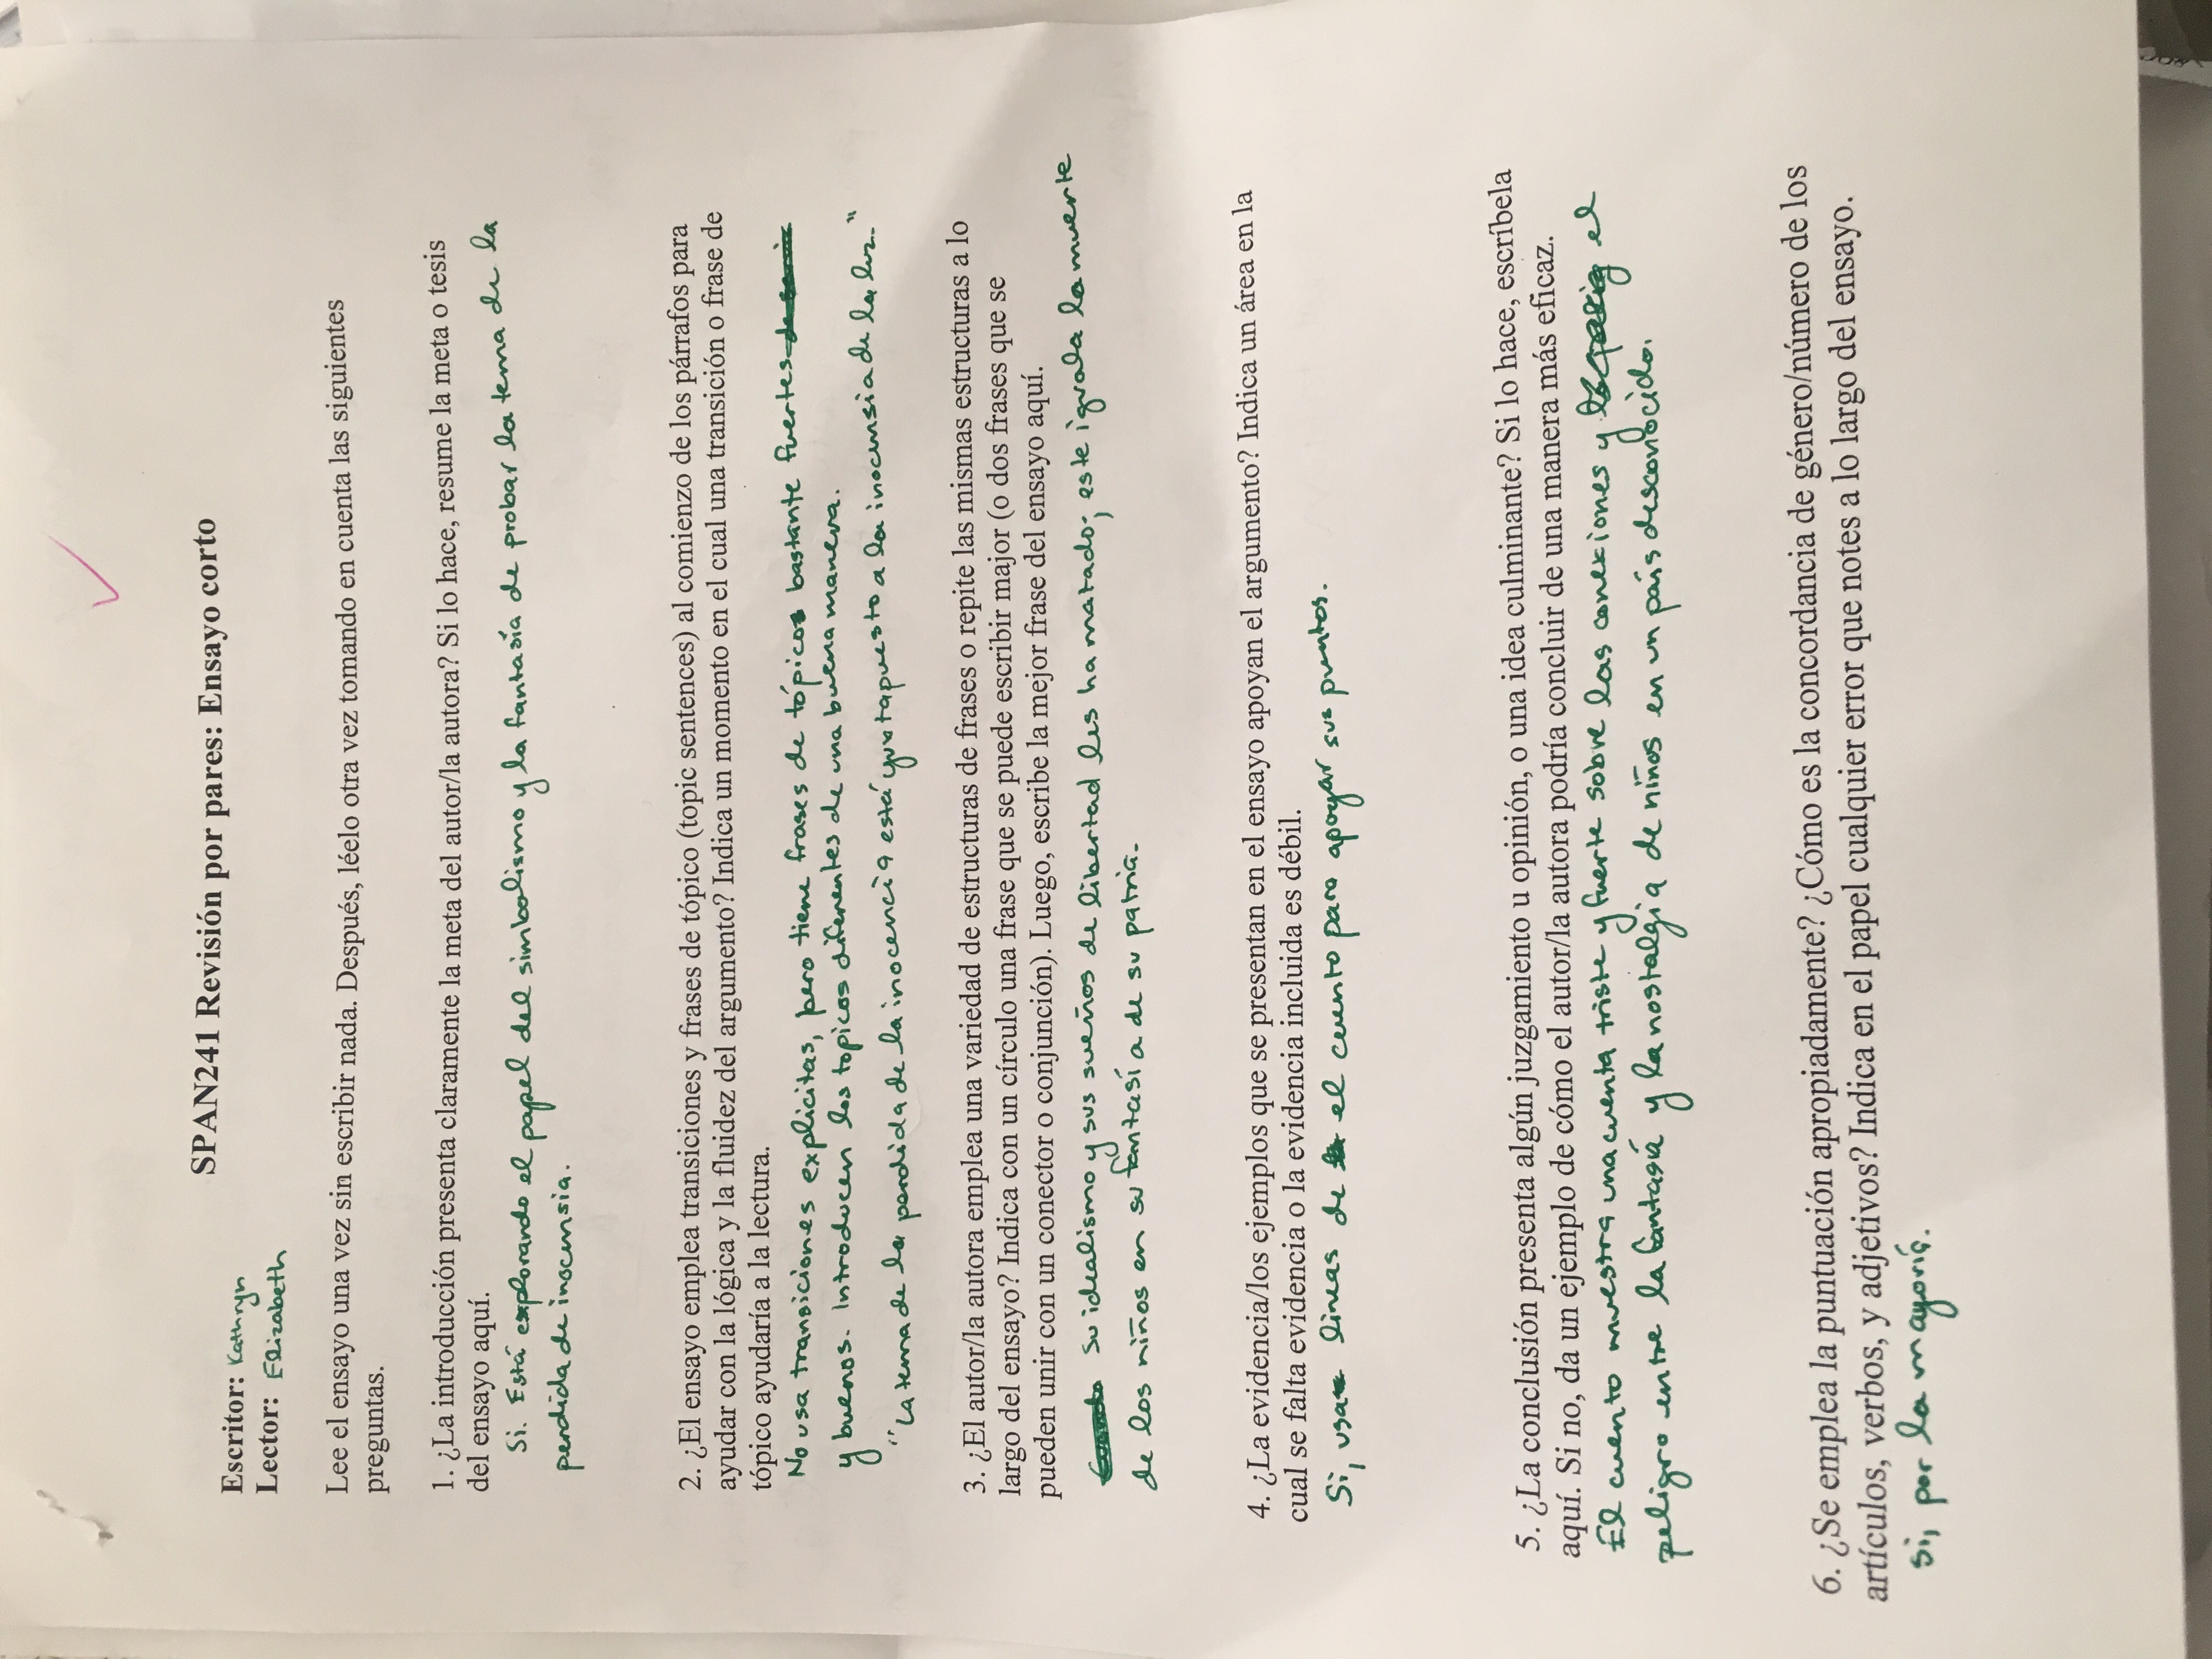 SPAN241 Revisión por pares: Ensayo corto
Escritor: Kathryn
Lector: Elizabeth
Lee el ensayo una vez sin escribir nada. Después, léelo otra vez tomando en cuenta las siguientes
preguntas.
1. ¿La introducción presenta claramente la meta del autor/la autora? Si lo hace, resume la meta o tesis
del ensayo aquí.
Si. Está explorando el papel del simbolismo y la fantasía de probar la tema de la
perdida de inocensia.
2. ¿El ensayo emplea transiciones y frases de tópico (topic sentences) al comienzo de los párrafos para
ayudar con la lógica y la fluidez del argumento? Indica un momento en el cual una transición o frase de
tópico ayudaría a la lectura.
No usa transiciones explicitas, pero tiene frases de tópicos bastante fuertes
y buenos. Introducen los topicos diferentes de una buena manera.
"La tema de la perdida de la inocencia está yuxtapuesto a la inocensia de la luz."
3. ¿El autor/la autora emplea una variedad de estructuras de frases o repite las mismas estructuras a lo
largo del ensayo? Indica con un círculo una frase que se puede escribir major (o dos frases que se
pueden unir con un conector o conjunción). Luego, escribe la mejor frase del ensayo aquí.
Su idealismo y sus sueños de libertad les ha matado; este iguala la muerte
de los niños en su fantasía de su patria.
4. ¿La evidencia/los ejemplos que se presentan en el ensayo apoyan el argumento? Indica un área en la
cual se falta evidencia o la evidencia incluida es débil.
Si, usa lineas de el cuento para apoyar sus puntos.
5. ¿La conclusión presenta algún juzgamiento u opinión, o una idea culminante? Si lo hace, escríbela
aquí. Si no, da un ejemplo de cómo el autor/la autora podría concluir de una manera más eficaz.
El cuento muestra una cuenta triste y fuerte sobre las conexiones y el
peligro entre la fantasía y la nostalgia de niños en un país desconocido.
6. ¿Se emplea la puntuación apropiadamente? ¿Cómo es la concordancia de género/número de los
artículos, verbos, y adjetivos? Indica en el papel cualquier error que notes a lo largo del ensayo.
Si, por la mayoría.